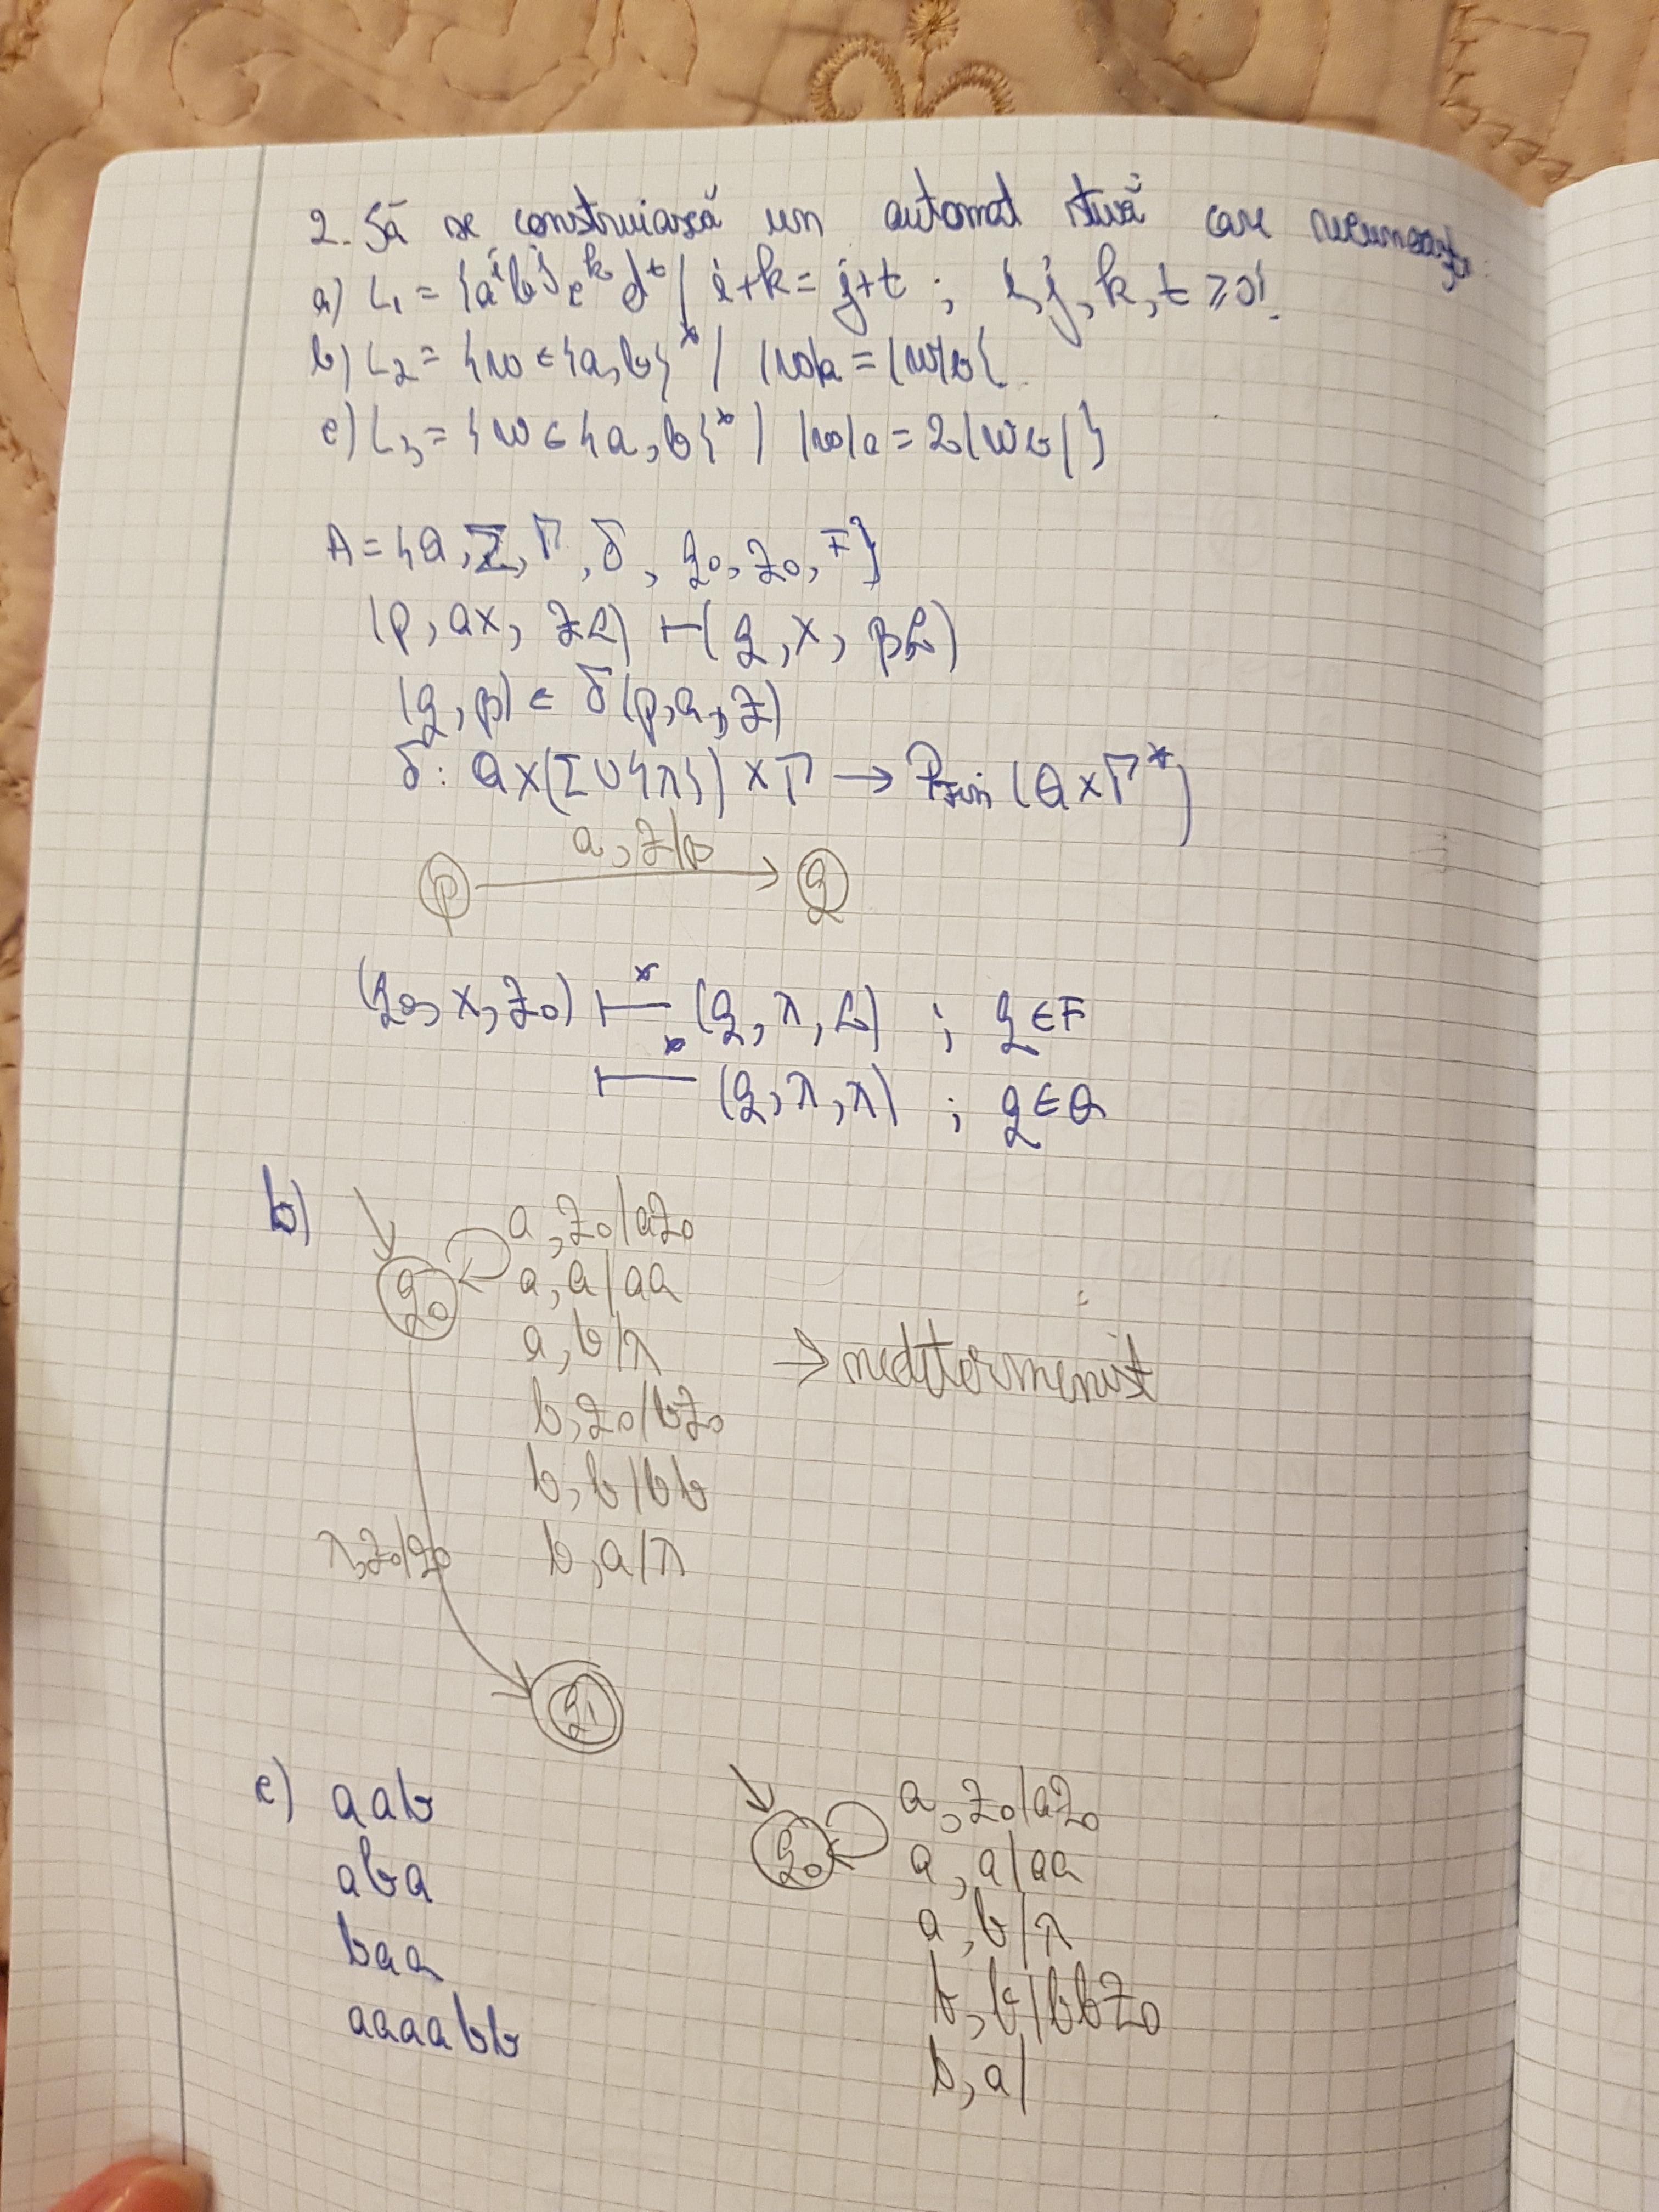 2. Să se construiască un automat stivă care recunoaște:
a) L₁ = {aⁱbʲcᵏdᵗ / i+k = j+t ; i,j,k,t ≥ 0}.
b) L₂ = {w ∈ {a,b}* / |w|a = |w|b}.
c) L₃ = {w ∈ {a,b}* / |w|a = 2|wb|}
A = {Q, Σ, Γ, δ, q₀, z₀, F}
(p, ax, zα) ⊢ (q, x, βα)
(q, β) ∈ δ(p, a, z)
δ: Q×(Σ∪{λ}) ×Γ → Pfin (Q×Γ*)
a, z/β
p q
(q₀, x, z₀) ⊢* (q, λ, α) ; q ∈ F
⊢* (q, λ, λ) ; q ∈ Q
b) a, z₀/az₀
q₀ a, a/aa
a, b/λ
→ nedeterminist
b, z₀/bz₀
b, b/bb
λ, z₀/z₀ b, a/λ
q₁
c) aab a, z₀/az₀
q₀ a, a/aa
aba
a, b/λ
baa
b, b/bbz₀
aaaabb
b, a/